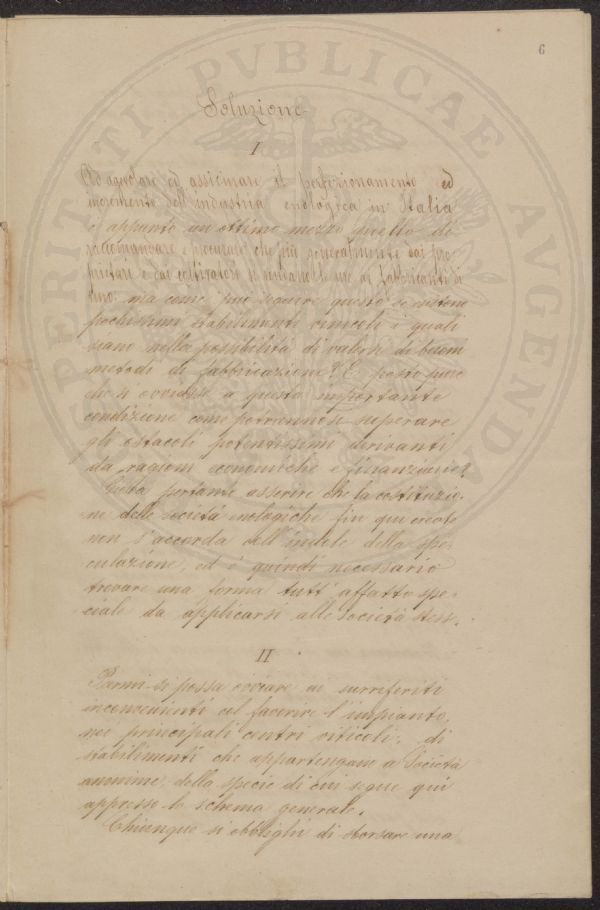 6
PROSPERITATI PVBLICAE AVGENDAE
Soluzione
I
Ad agevolare ed assicurare il perfezionamento ed
incremento dell'industria enologica in Italia
è appunto un ottimo mezzo quello di
raccomandare e procurare che più generalmente dai pro-
prietari e dai coltivatori si vendano le uve ai fabbricanti di
vino; ma come può seguire questo se esistono
pochissimi stabilimenti vinicoli i quali
siano nella possibilità di valersi di buoni
metodi di fabbricazione? E posto pure
che si ovviasse a questa importante
condizione come potrannosi superare
gli ostacoli potentissimi derivanti
da ragioni economiche e finanziarie?
Giova pertanto asserire che la costituzio-
ne delle società enologiche fin qui create
non s'accorda coll'indole della spe-
culazione, ed è quindi necessario
trovare una forma tutt'affatto spe-
ciale da applicarsi alle società stesse.
II
Parmi si possa ovviare ai surriferiti
inconvenienti col favorire l'impianto,
nei principali centri viticoli, di
stabilimenti che appartengano a Società
anonime, della specie di cui segue qui
appresso lo schema generale.
Chiunque si obblighi di sborsare una